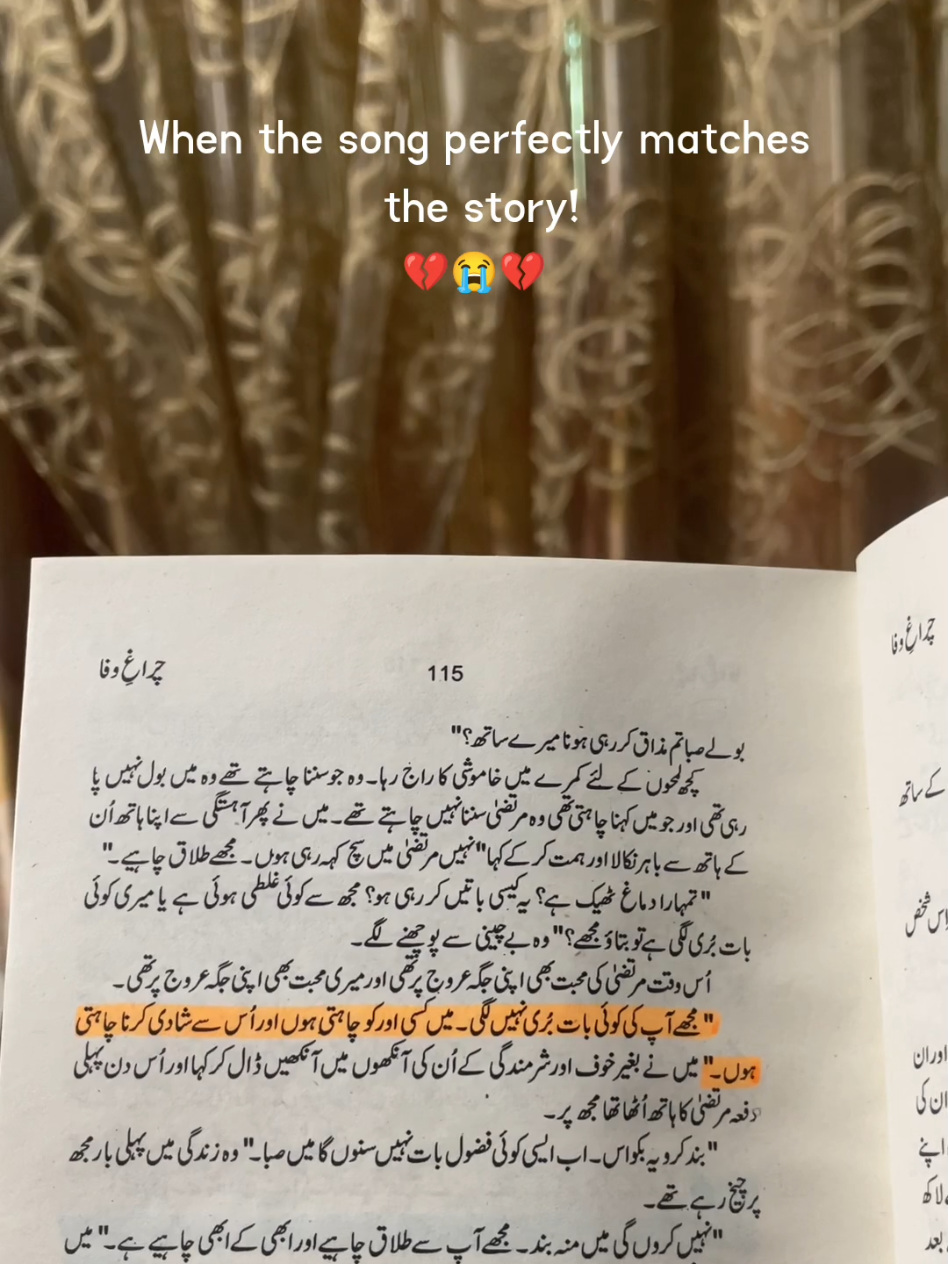 When the song perfectly matches
the story!
💔😭💔
چراغِ وفا
115
چراغِ وفا
بولے صبا تم مذاق کر رہی ہو نا میرے ساتھ؟"
کچھ لمحوں کے لئے کمرے میں خاموشی کا راج رہا۔ وہ جو سننا چاہتے تھے وہ میں بول نہیں پا
رہی تھی اور جو میں کہنا چاہتی تھی وہ مرتضیٰ سننا نہیں چاہتے تھے۔ میں نے پھر آہستگی سے اپنا ہاتھ اُن
کے ہاتھ سے باہر نکالا اور ہمت کر کے کہا "نہیں مرتضیٰ میں سچ کہہ رہی ہوں۔ مجھے طلاق چاہیے۔"
"تمہارا دماغ ٹھیک ہے؟ یہ کیسی باتیں کر رہی ہو؟ مجھ سے کوئی غلطی ہوئی ہے یا میری کوئی
بات بُری لگی ہے تو بتاؤ مجھے؟" وہ بے چینی سے پوچھنے لگے۔
اُس وقت مرتضیٰ کی محبت بھی اپنی جگہ عروج پر تھی اور میری محبت بھی اپنی جگہ عروج پر تھی۔
"مجھے آپ کی کوئی بات بُری نہیں لگی۔ میں کسی اور کو چاہتی ہوں اور اُس سے شادی کرنا چاہتی
ہوں۔" میں نے بغیر خوف اور شرمندگی کے اُن کی آنکھوں میں آنکھیں ڈال کر کہا اور اُس دن پہلی
دفعہ مرتضیٰ کا ہاتھ اُٹھا تھا مجھ پر۔
"بند کرو یہ بکواس۔ اب ایسی کوئی فضول بات نہیں سنوں گا میں صبا۔" وہ زندگی میں پہلی بار مجھ
پر چیخ رہے تھے۔
"نہیں کروں گی میں منہ بند۔ مجھے آپ سے طلاق چاہیے اور ابھی کے ابھی چاہیے ہے۔" میں
کے ساتھ
اس شخص
اور ان
ان کی
اپنے
لاکھ
بعد